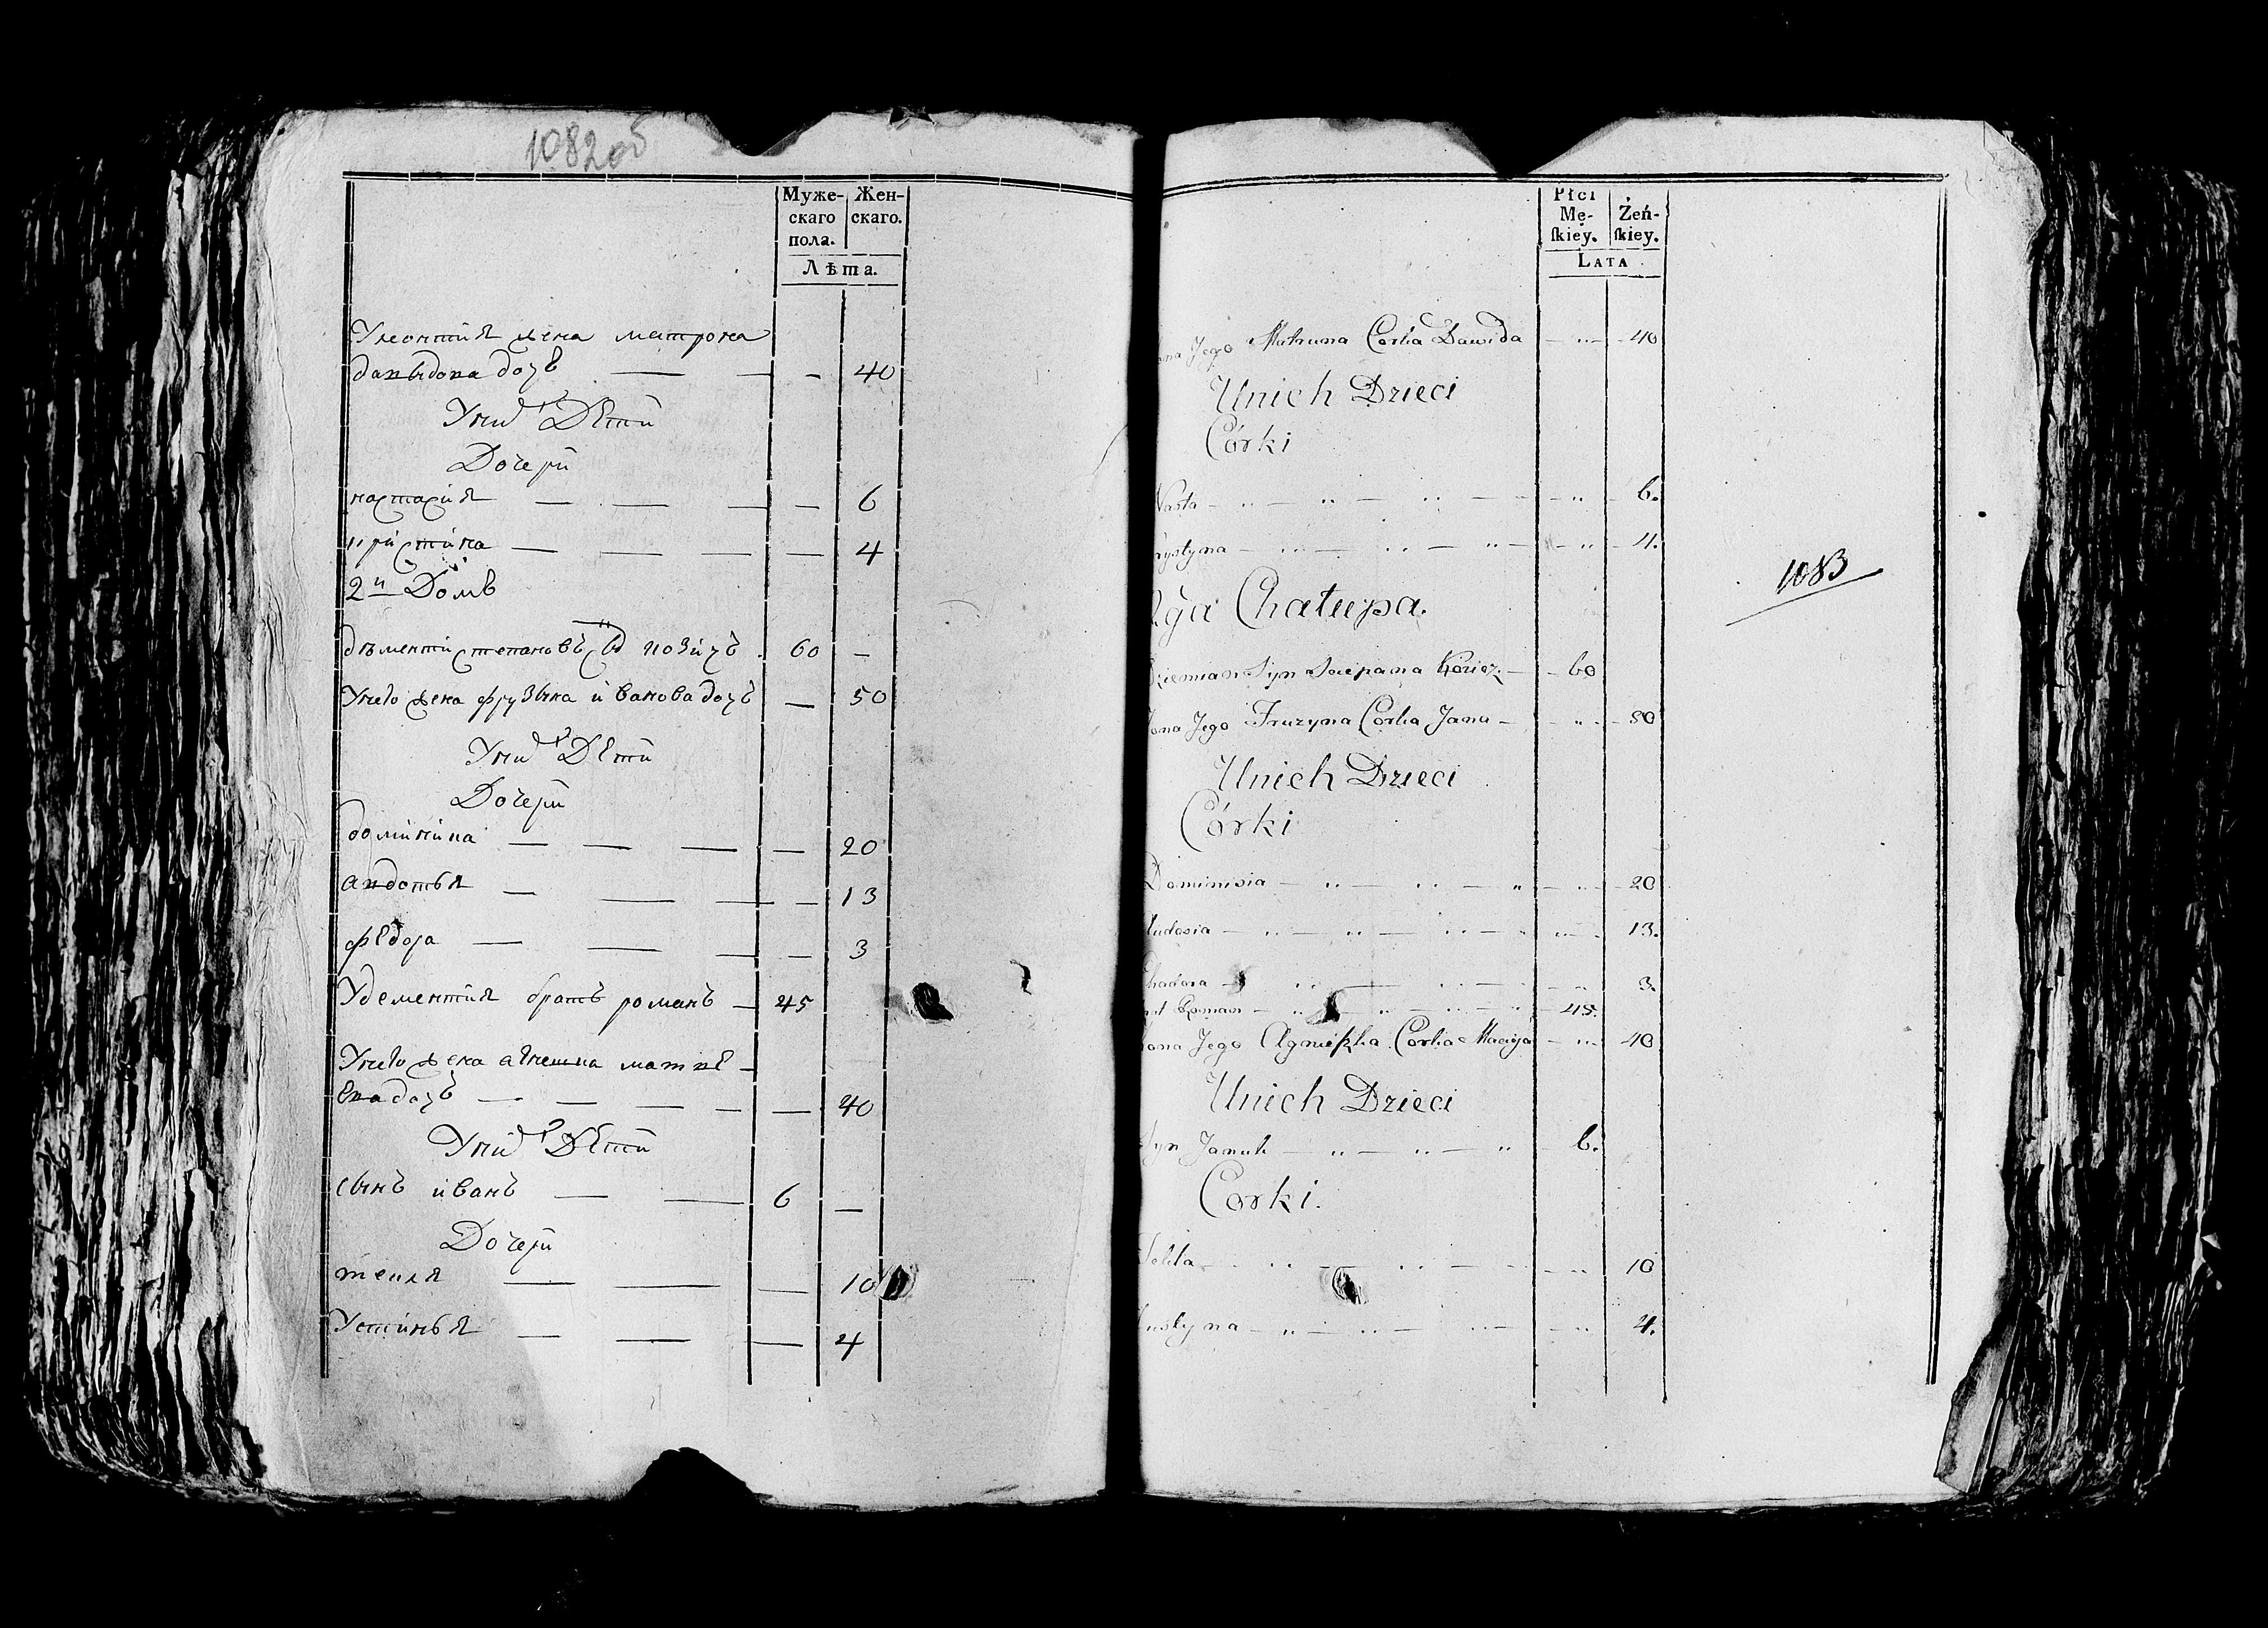 1082об
Муже-
скаго
пола.
Жен-
скаго.
Лѣта.
Улеонтія жена матрона
давыдова дочь — — — 40
Уних Дети
Дочери
настасия — — — — 6
кристина — — — — 4
2й Домъ
дѣменти степановъ сы козичъ 60 —
Унего жена фрузына иванова дочь — 50
Уних Дети
Дочери
доминика — — — — 20
авдотья — — — — 13
федора — — — — 3
Удементия братъ романъ — 45
Унего жена агнешка матве-
ева дочь — — — — — 40
Уних Дети
сынъ иванъ — — 6 —
Дочери
текля — — — 10
Устинья — — — 4
Płci
Mę-
skiey.
Żeń-
skiey.
Lata
Jego Matruna Corka Dawida — „ — 40
Unich Dzieci
Córki
Nasta — „ — „ — „ — 6.
rystyna — „ — „ — „ — „ — 4.
2ga Chałupa.
Dziemian Syn Sciepana Kozicz — 60
ona Jego Fruzyna Corka Jana — „ — 50
Unich Dzieci
Córki
Dominisia — „ — „ — „ — „ — 20
Audosia — „ — „ — „ — „ — 13.
Chadora — „ — „ — „ — 3.
at Roman — „ — „ — „ — 45.
ona Jego Agnieszka Corka Macieja — „ — 40
Unich Dzieci
Syn Januk — „ — „ — „ 6.
Corki.
— „ — „ — „ — 10
ustyna — „ — „ — „ — „ 4.
1083